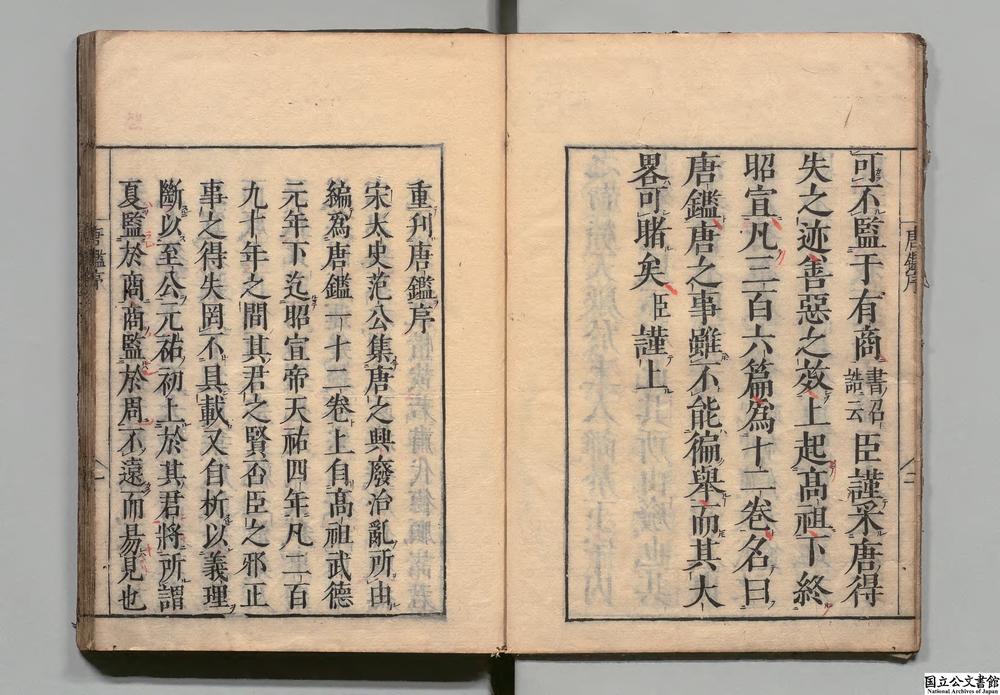 可不監于有商書召誥云臣謹采唐得
失之迹善惡之效上起高祖下終
昭宣凡三百六篇為十二卷名曰
唐鑑唐之事雖不能徧舉而其大
畧可睹矣臣謹上
唐鑑序
重刋唐鑑序
宋太史范公集唐之興廢治亂所由
編爲唐鑑一十二卷上自高祖武德
元年下迄昭宣帝天祐四年凡二百
九十年之間其君之賢否臣之邪正
事之得失罔不具載又自析以義理
斷以至公元祐初上於其君將所謂
夏監於商商監於周不遠而易見也
唐鑑序
国立公文書館
National Archives of Japan